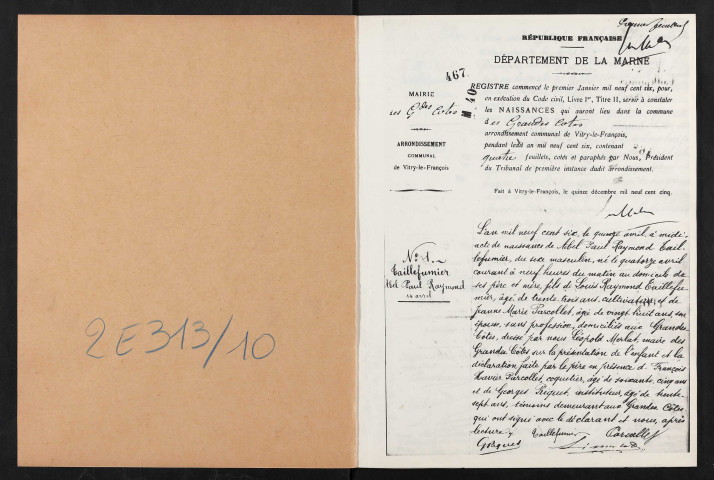 2E313/10
Premier feuillet
RÉPUBLIQUE FRANÇAISE
DÉPARTEMENT DE LA MARNE
467
M 40
MAIRIE
des Gdes Cotes
ARRONDISSEMENT
COMMUNAL
de Vitry-le-François
REGISTRE commencé le premier Janvier mil neuf cent six, pour,
en exécution du Code civil, Livre Ier, Titre II, servir à constater
les NAISSANCES qui auront lieu dans la commune
des Grandes Cotes
arrondissement communal de Vitry-le-François,
pendant ledit an mil neuf cent six, contenant
quatre feuillets, cotés et paraphés par Nous, Président
du Tribunal de première instance dudit arrondissement.
Fait à Vitry-le-François, le quinze décembre mil neuf cent cinq.
No 1.
Taillefumier
Abel Paul Raymond
14 avril
L'an mil neuf cent six, le quinze avril, à midi,
acte de naissance de Abel Paul Raymond Tail-
lefumier, du sexe masculin, né le quatorze avril
courant à neuf heures du matin au domicile de
ses père et mère, fils de Louis Raymond Taillefu-
mier, âgé de trente trois ans, cultivateur, et de
Jeanne Marie Parcollet, âgée de vingt huit ans son
épouse, sans profession, domiciliés aux Grandes
Côtes, dressé par nous Léopold Morlat, maire des
Grandes Côtes sur la présentation de l'enfant et la
déclaration faite par le père en présence de François
Xavier Parcollet, coquetier, âgé de soixante cinq ans
et de Georges Piquet, instituteur, âgé de trente
sept ans, témoins demeurant aux Grandes Côtes
qui ont signé avec le déclarant et nous, après
lecture.
Taillefumier Parcollet